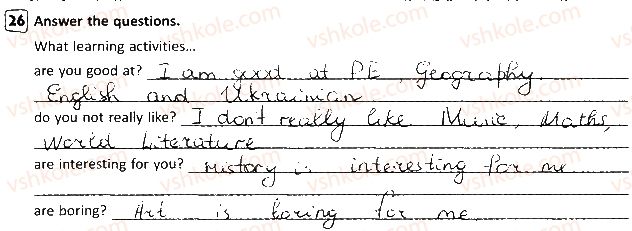 26 Answer the questions.
What learning activities...
are you good at? I am good at P.E, Geography,
English and Ukrainian
do you not really like? I dont really like Music, Maths,
World Literature
are interesting for you? History is interesting for me
are boring? Art is boring for me